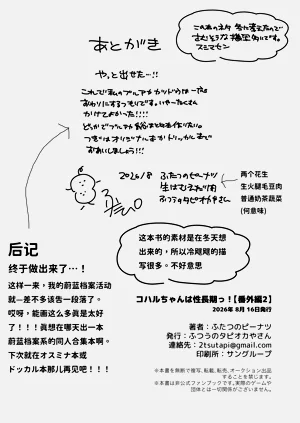 あとがき
この本のネタ 冬に考えたので
さむそうな描写多いです。
スミマセン
やっと出せた…!!
これで私のブルアカ
おわりにするつもりです。いやーたくさん
かけてよかった!!!!
どっかでブルアカ総まとめ本作りたい。
つぎはオリジナル本かドッカル本で
おあいしましょう!!!
2026/8
ふたつのピーナツ
生ハムえだ豆
ふつうのタピオカやさん
两个花生
生火腿毛豆肉
普通奶茶蔬菜
(何意味)
后记
终于做出来了…！
这样一来，我的蔚蓝档案活动
就—差不多该告一段落了。
哎呀，能画这么多真是太好
了！！！真想在哪天出一本
蔚蓝档案系的同人合集本啊。
下次就在オスミナ本或
ドッカル本那儿再见吧！！！
这本书的素材是在冬天想
出来的，所以冷飕飕的描
写很多。不好意思
コハルちゃんは性長期っ！【番外編2】
2026年 8月 16日発行
著者：ふたつのピーナツ
発行：ふつうのタピオカやさん
連絡先：2tsutapi@gmail.com
印刷所：サングループ
※本書を無断で複写、転載、転売、オークション出品
することを禁じます。
※本書は非公式ファンブックです。実際のゲームや
団体とは一切関係がございません。